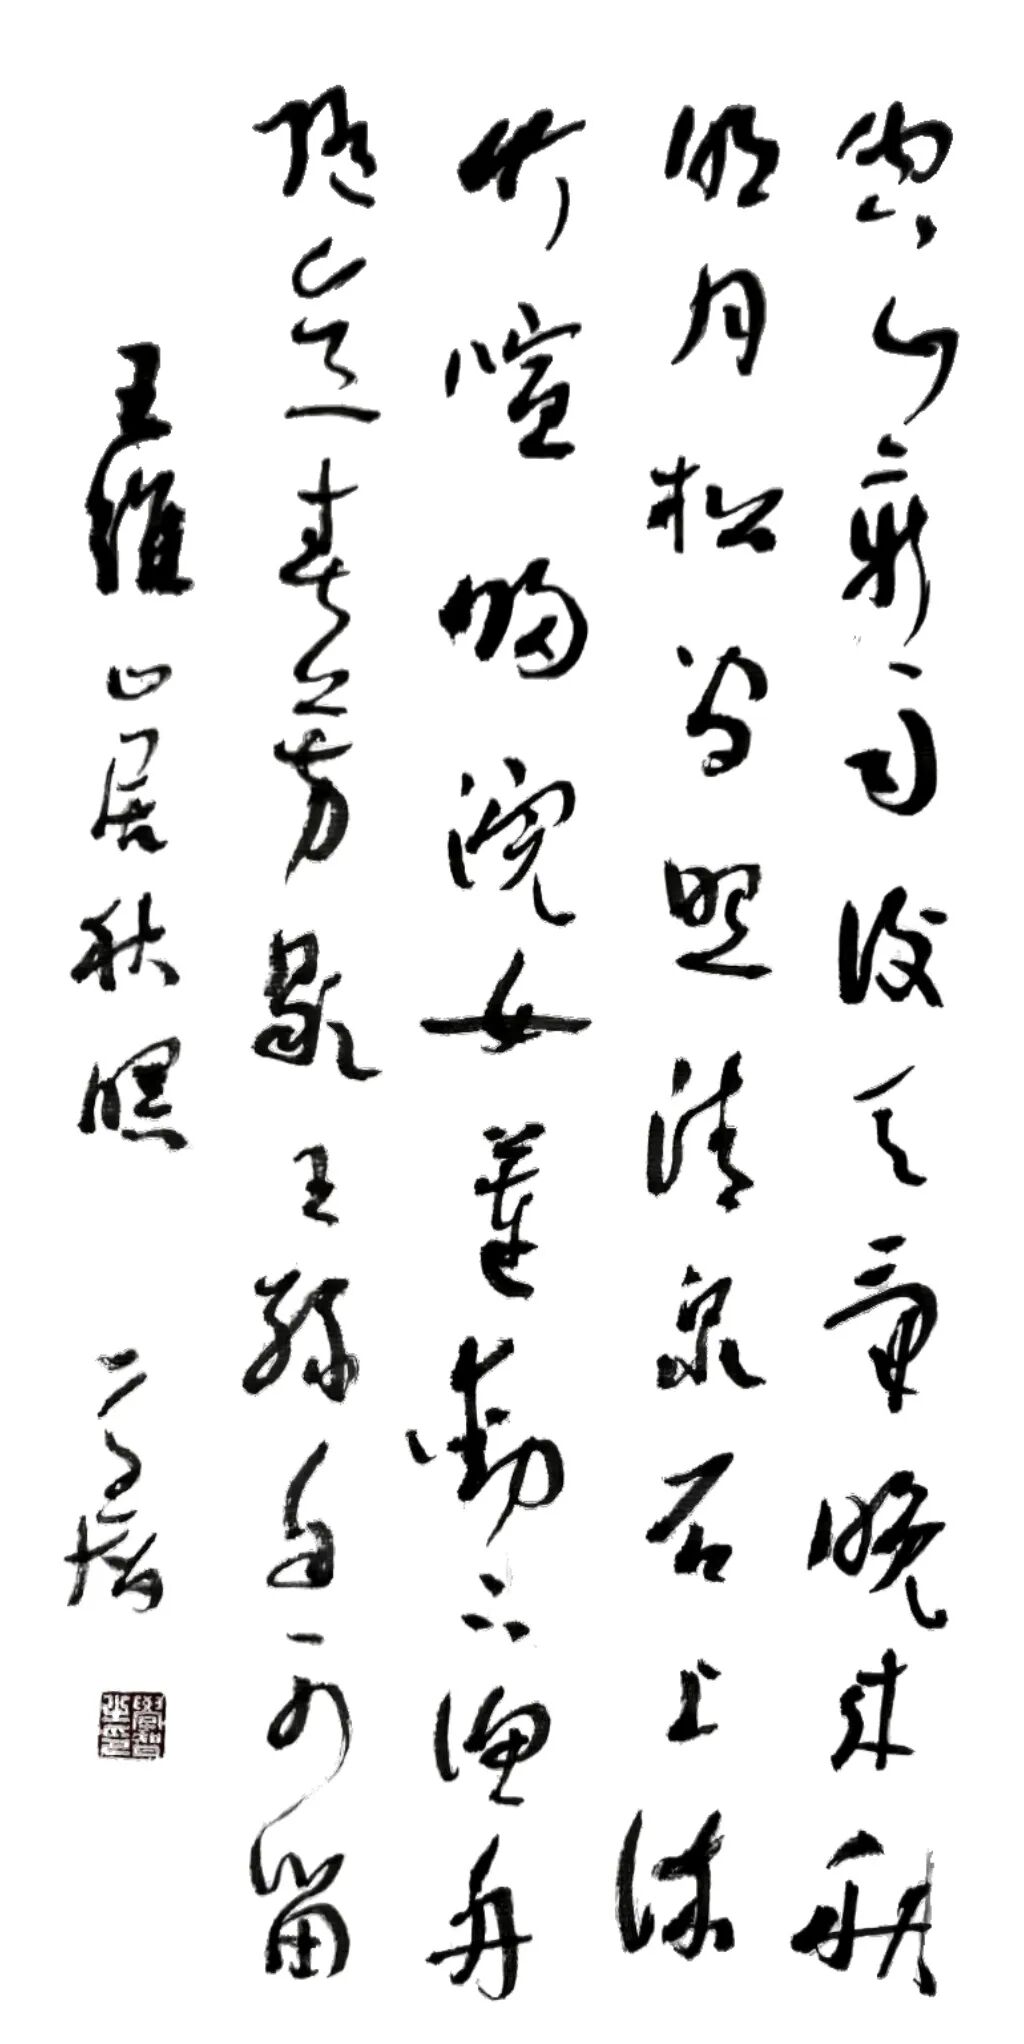 空山新雨後天氣晚來秋
明月松間照清泉石上流
竹喧歸浣女蓮動下漁舟
隨意春芳歇王孫自可留
王維山居秋暝